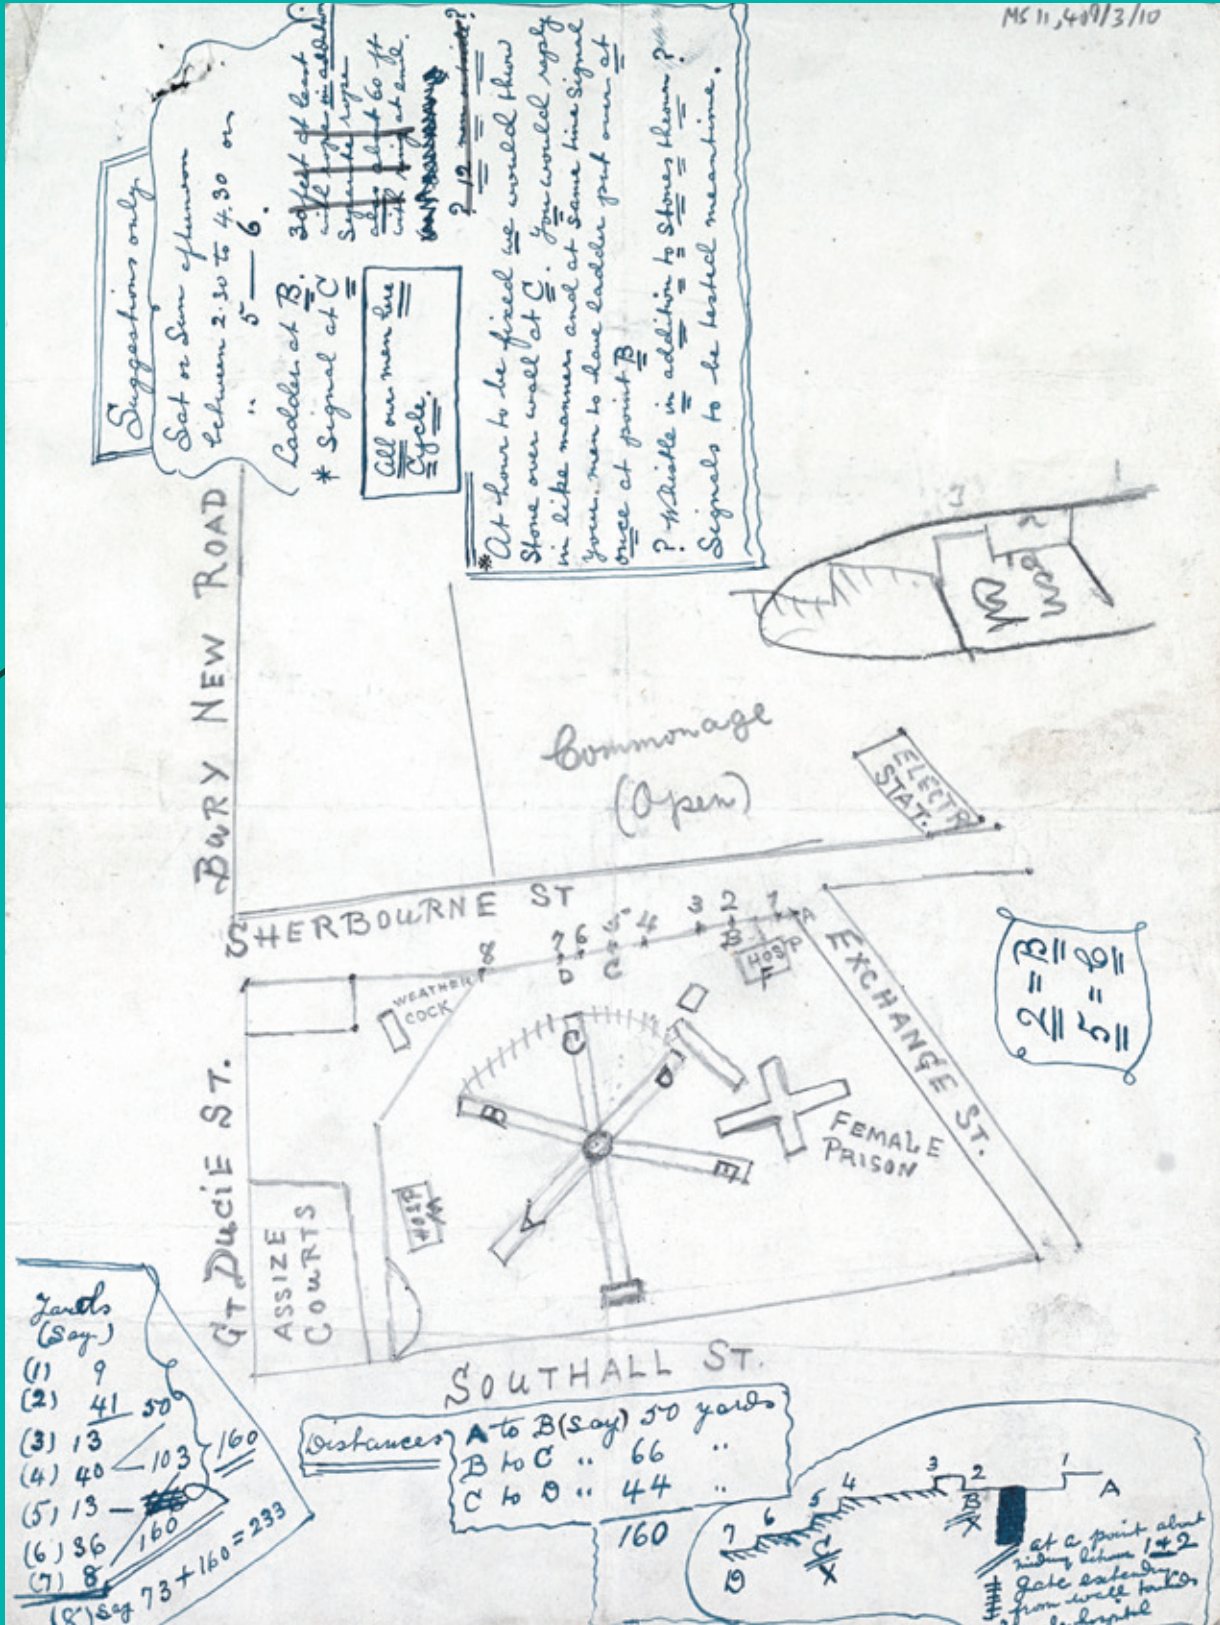 MS 11,409/3/10
Suggestions only
Sat or Sun afternoon
between 2.30 to 4.30 or
" 5 — 6.
Ladder at B.
30 feet at least
with rope in addition
Separate rope
also about 60 ft
with ring at end.
* Signal at C
All our men here
Cycle.
? 12 men outside?
* At hour to be fixed we would throw
Stone over wall at C. You would reply
in like manner and at same time signal
your men to have ladder put over at
once at point B
? Whistle in addition to stones thrown?
Signals to be tested meantime.
BURY NEW ROAD
Commonage
(Open)
ELECTR
STAT.
SHERBOURNE ST
8 7 6 5 4 3 2 1
D C B A
HOSP
F
WEATHER
COCK
EXCHANGE ST.
2 = B
5 = C
C
D
B
E
A
FEMALE
PRISON
HOSP
M
GT. DUCIE ST.
ASSIZE
COURTS
SOUTHALL ST.
Yards
(Say.)
(1) 9
(2) 41 50
(3) 13
(4) 40 103 160
(5) 13
(6) 36 160
(7) 8
(8) say 73 + 160 = 233
Distances
A to B (Say) 50 yards
B to C " 66 "
C to D " 44 "
160
7 6 5 4 3 2 1
D C B A
X X
at a point about
midway between 1 & 2
gate extending
from wall towards
hospital